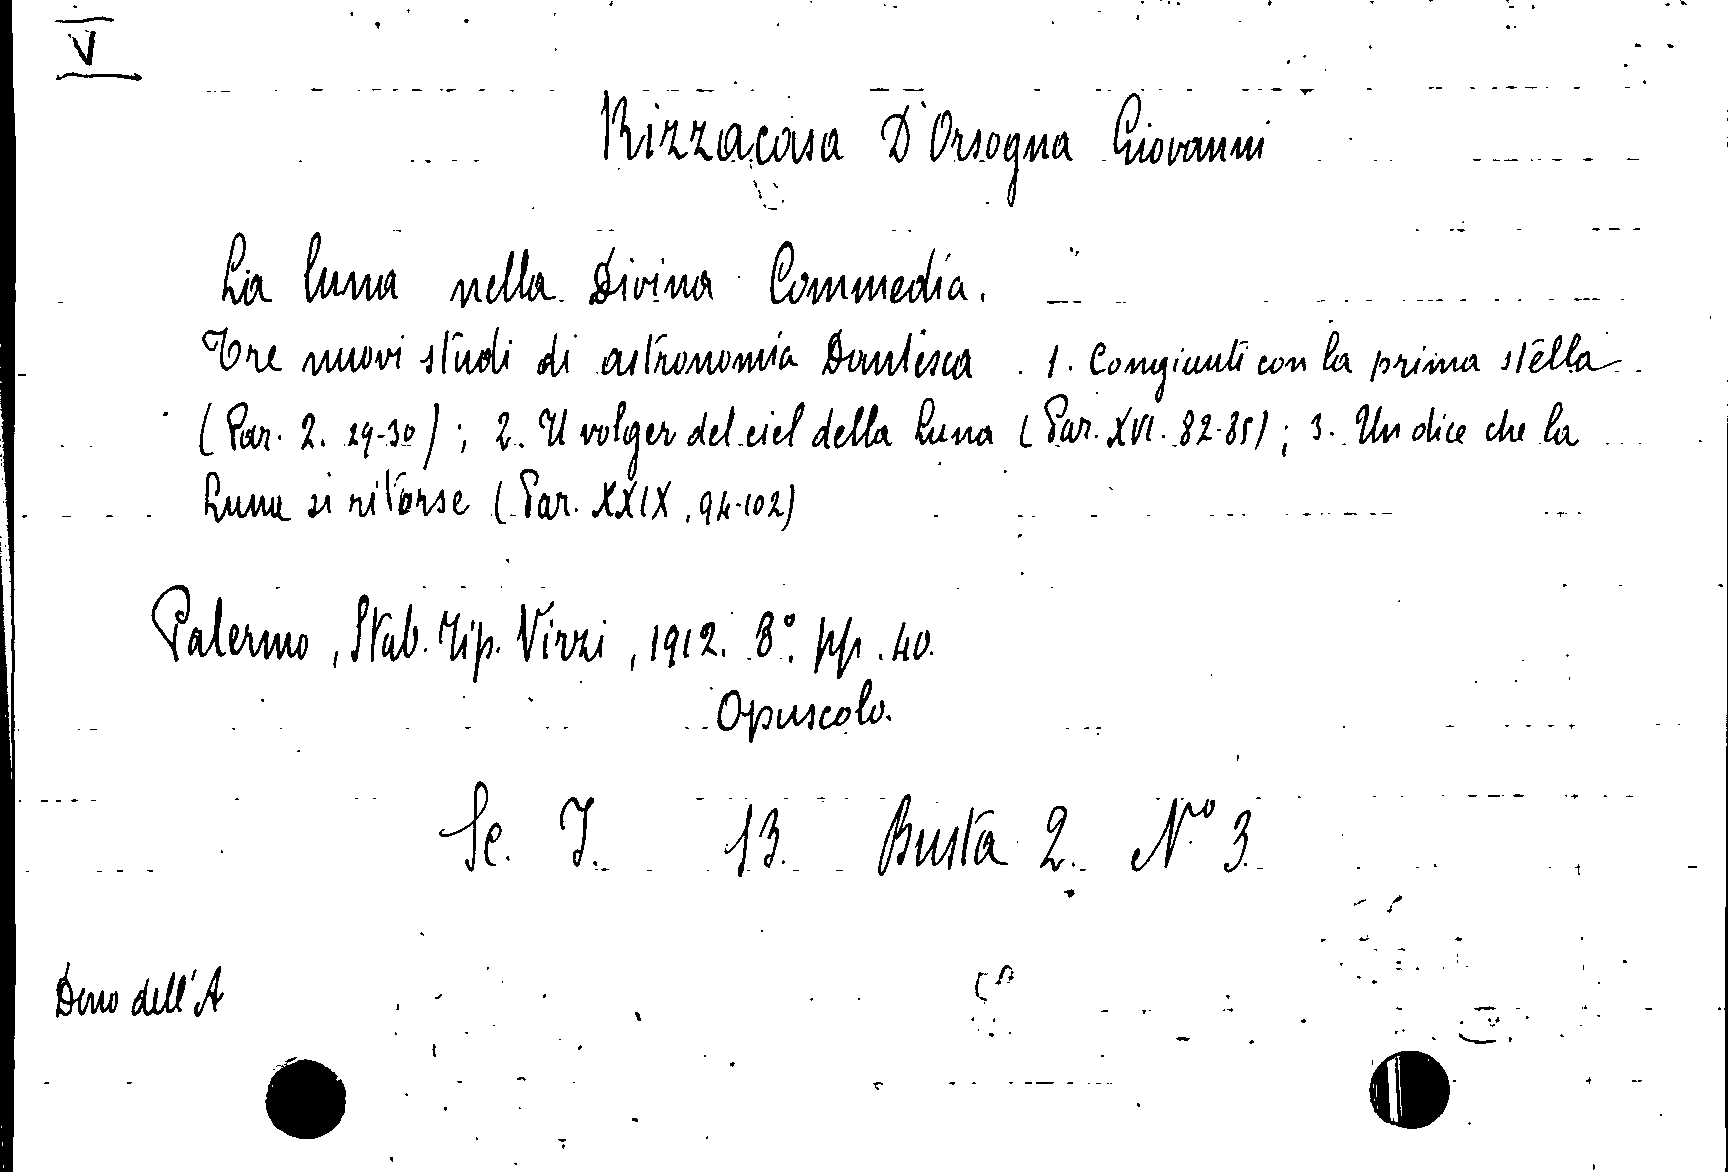 V
Rizzacasa D'Orsogna Giovanni
La luna nella Divina Commedia.
Tre nuovi studi di astronomia Dantesca. 1. Congiunti con la prima stella
(Par. 2. 29-30); 2. Il volger del ciel della Luna (Par. XVI. 82-85); 3. Un dice che la
Luna si ritorse (Par. XXIX, 94-102)
Palermo, Stab. Tip. Virzi, 1912. 8°. pp. 40.
Opuscolo.
Sc. I. 13. Busta 2. N° 3
Dono dell'A